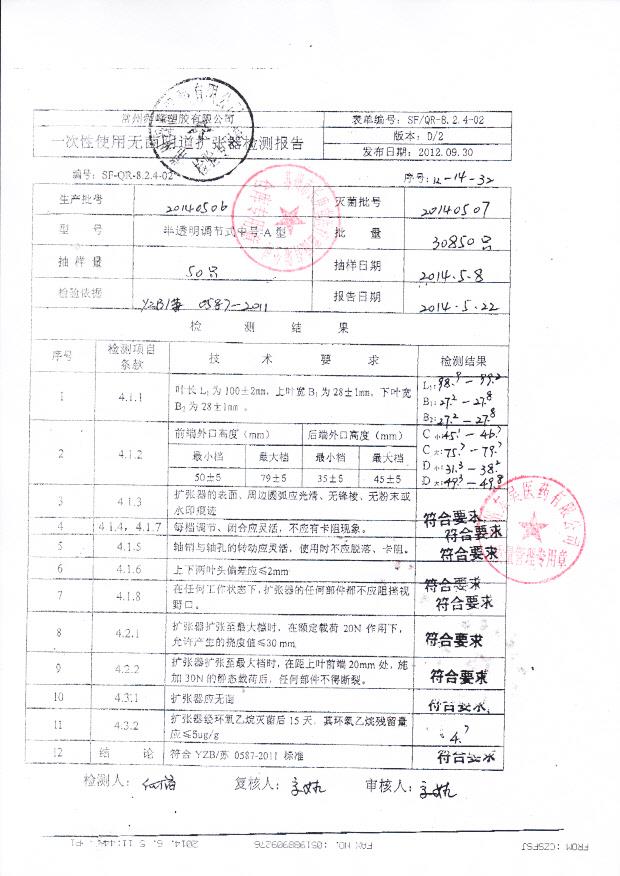 常州 塑胶有限公司
表单编号: SF/QR-8.2.4-02
一次性使用无菌阴道扩张器检测报告
版本: D/2
发布日期: 2012.09.30
编号: SF-QR-8.2.4-02
序号: 4-14-32
生产批号 20140506 灭菌批号 20140507
型 号 半透明调节式中号 A 型 批 量 30850 只
抽样量 50只 抽样日期 2014.5.8
检验依据 YZB/苏 0587-2011 报告日期 2014.5.22
检 测 结 果
序号 检测项目条款 技 术 要 求 检测结果
1 4.1.1 叶长 L₁ 为 100±2mm, 上叶宽 B₁ 为 28±1mm, 下叶宽
B₂ 为 28±1mm 。
L₁: 98.9 - 99.2
B₁: 27.2 - 27.8
B₂: 27.2 - 27.8
2 4.1.2 前端外口高度（mm） 后端外口高度（mm）
最小档 最大档 最小档 最大档
50±5 79±5 35±5 45±5
C小: 45.1 - 46.7
C大: 75.7 - 79.7
D小: 31.3 - 38.2
D大: 49.3 - 49.8
3 4.1.3 扩张器的表面、周边圆弧应光滑、无锋棱、无粉末或
水印痕迹
符合要求
4 4.1.4, 4.1.7 每档调节、闭合应灵活，不应有卡阻现象。 符合要求
5 4.1.5 轴销与轴孔的转动应灵活，使用时不应脱落、卡阻。 符合要求
6 4.1.6 上下两叶头偏差应≤2mm 符合要求
7 4.1.8 在任何工作状态下, 扩张器的任何部件都不应阻挡视
野口。
符合要求
8 4.2.1 扩张器扩张至最大档时，在额定载荷 20N 作用下，
允许产生的挠度值≤30mm
符合要求
9 4.2.2 扩张器扩张至最大档时，在距上叶前端 20mm 处，施
加 30N 的静态载荷后，任何部件不得断裂。
符合要求
10 4.3.1 扩张器应无菌 符合要求
11 4.3.2 扩张器经环氧乙烷灭菌后 15 天，其环氧乙烷残留量
应≤5ug/g
4.7
12 结 论 符合 YZB/苏 0587-2011 标准 符合要求
检测人: 复核人: 审核人:
FROM :CZSFSJ FAX NO. :051988909276 2014. 6. 5 11:44 P1